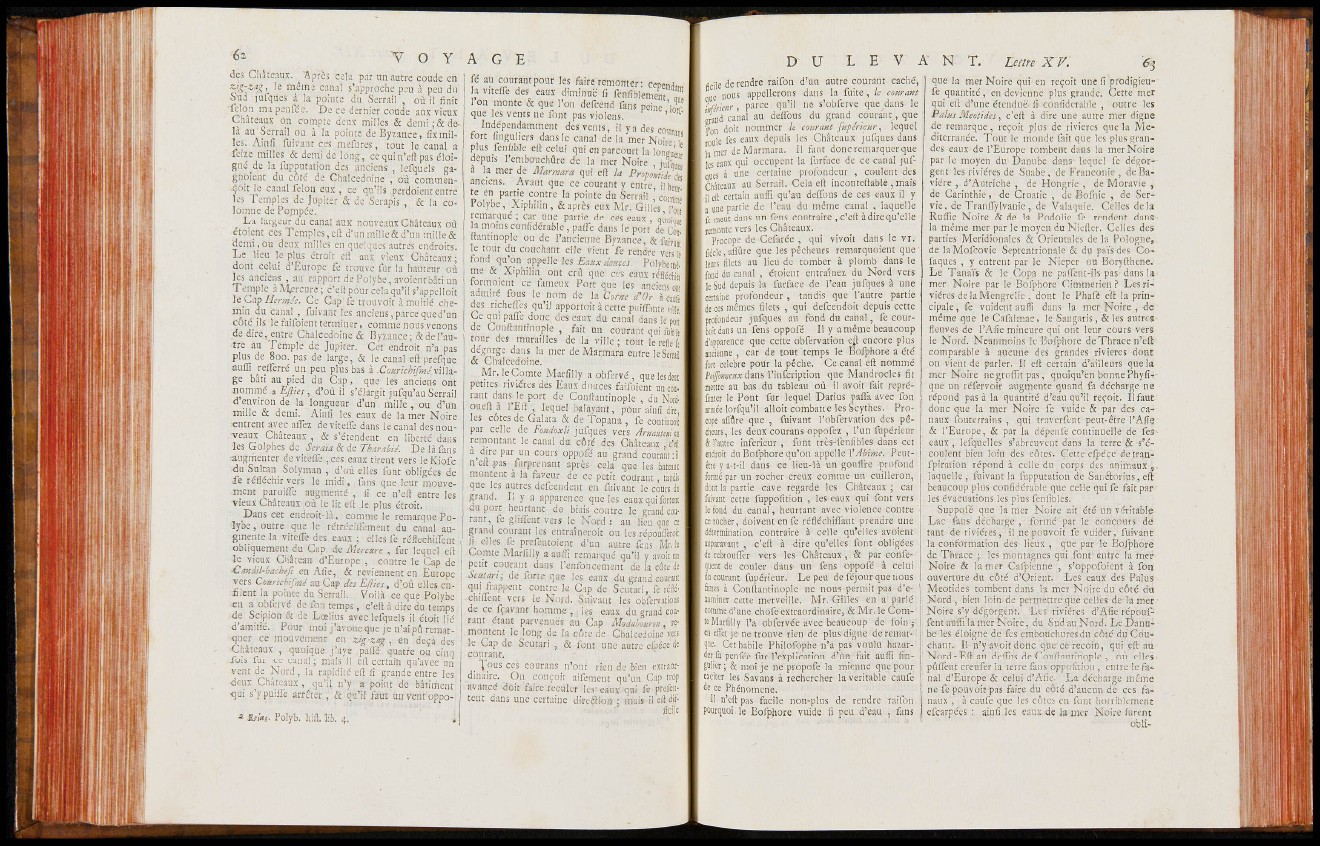 62 VOYAGE
des Châteaux. Après cela par un autre coude en
zig-zag, le même canal s'approche peu à peu du
Sud jusques à la pointe du Serrail, où il finit
selon ma pensée. De ce dernier coude aux vieux
Châteaux on compte deux milles & demi; & de-
là au Serrail ou à la pointe de Byzance, six mil-
les. Ainsi suivant ces mesures, tout le canal a
seize milles & demi de long, ce qui n'est pas éloi-
gné de la supputation des anciens, lesquels ga-
gnoient du côté de Chalcedoine, où commen-
çoit le canal selon eux, ce qu'ils perdoient entre
les Temples de Jupiter & de Serapis, & la co-
lomne de Pompée.
La largeur du canal aux nouveaux Châteaux où
étoient ces Temples, est d'un mille & d'un mille &
demi, ou deux milles en quelques autres endroits.
Le lieu le plus étroit est aux vieux Châteaux;
dont celui d'Europe se trouve sur la hauteur où
les anciens, au rapport de Polybe, avoient bâti un
Temple à Mercure; c'est pour cela qu'il s'appelloit
le Cap Hermée. Ce Cap se trouvoit à moitié che-
min du canal, suivant les anciens, parce que d'un
côté ils le faisoient terminer, comme nous venons
de dire, entre Chalcedoine & Byzance; & de l'au-
tre au Temple de Jupiter. Cet endroit n'a pas
plus de 800. pas de large, & le canal est presque
aussi resserré un peu plus bas à Courichismé villa-
ge bâti au pied du Cap, que les anciens ont
nommé a Esties, d'où il s'élargit jusqu'au Serrail
d'environ de la longueur d'un mille, ou d'un
mille & demi. Ainsi les eaux de la mer Noire
entrent avec assez de vitesse dans le canal des nou-
veaux Châteaux, & s'étendent en liberté dans
les Golphes de Seraïa & de Tharabié. De là sans
augmenter de vitesse, ces eaux tirent vers le Kiosc
du Sultan Solyman, d'où elles sont obligées de
se réfléchir vers le midi, sans que leur mouve-
ment paroisse augmenté, si ce n'est entre les
vieux Châteaux où le lit est le plus étroit.
Dans cet endroit-là, comme le remarque Po-
lybe, outre que le rétrécissement du canal au-
gmente la vitesse des eaux; elles se réflechissent
obliquement du Cap de Mercure, sur lequel est
le vieux Château d'Europe, contre le Cap de
Candil-bachesi en Asie, & reviennent en Europe
vers Courichismé au Cap des Esties, d'où elles en-
filent la pointe du Serrail. Voilà ce que Polybe
en a observé de son temps, c'est à dire du temps
de Scipion & de Lœlius avec lesquels il étoit lié
d'amitié. Pour moi j'avoue que je n'ai pû remar-
quer ce mouvement en zig-zag, en deçà des
Châteaux, quoique j'aye passé quatre ou cinq
fois sur ce canal; mais il est certain qu'avec un
vent de Nord, la rapidité est si grande entre les
deux Châteaux, qu'il n'y a point de bâtiment
qui s'y puisse arrêter, & qu'il faut un vent oppo-
a Polyb. hist. lib. 4.
sé au courant pour les faire remonter: cependant
la vitesse des eaux diminue si sensiblement, que
l'on monte & que l'on descend sans peine, lors-
que les vents ne sont pas violens.
Indépendamment des vents, il y a des courans
fort singuliers dans le canal de la mer Noire; le
plus sensible est celui qui en parcourt la longueur
depuis l'embouchûre de la mer Noire, jusques
à la mer de Marmara qui est la Propontide des
anciens. Avant que ce courant y entre, il heur-
te en partie contre la pointe du Serrail, comme
Polybe, Xiphilin, & après eux Mr. Gilles, l'ont
remarqué; car une partie de ces eaux, quoique
la moins considérable, passe dans le port de Con-
stantinople ou de l'ancienne Byzance, & suivant
le tour du couchant elle vient se rendre vers le
fond qu'on appelle les Eaux douces. Polybe mê-
me & Xiphilin ont crû que ces eaux réfléchies
formoient ce fameux Port que les anciens ont
admiré sous le nom de la Corne d'Or à cause
des richesses qu'il apportoit à cette puissante ville.
Ce qui passe donc des eaux du canal dans le port
de Constantinople, fait un courant qui suit le
tour des murailles de la ville; tout le reste se
dégorge dans la mer de Marmara entre le Serrail
& Chalcedoine.
Mr. le Comte Marsilly a observé, que les deux
petites riviéres des Eaux douces faisoient un cou-
rant dans le port de Constantinople, du Nord-
ouest à l'Est, lequel balayant, pour ainsi dire,
les côtes de Galata & de Topana, se continuoit
par celle de Fondoxli jusques vers Arnautcui en
remontant le canal du côté des Châteaux, c'est
à dire par un cours opposé au grand courant: il
n'est pas surprenant après cela que les bateaux
montent à la faveur de ce petit courant, tandis
que les autres descendent en suivant le cours du
grand. Il y a apparence que les eaux qui sortent
du port heurtant de biais contre le grand cou-
rant, se glissent vers le Nord: au lieu que ce
grand courant les entraîneroit ou les répousseroit
si elles se presentoient d'un autre sens. Mr. le
Comte Marsilly a aussi remarqué qu'il y avoit un
petit courant dans l'enfoncement de la côte de
Scutari; de sorte que les eaux du grand courant
qui frappent contre le Cap de Scutari, se réflé-
chissent vers le Nord. Suivant les observations
de ce sçavant homme, les eaux du grand cou-
rant étant parvenues au Cap Modabouron, re-
montent le long de la côte de Chalcedoine vers
le Cap de Scutari, & font une autre espéce de
courant.
Tous ces courans n'ont rien de bien extraor-
dinaire. On conçoit aisement qu'un Cap trop
avancé doit faire reculer les eaux qui se presen-
tent dans une certaine direction; mais il est dif-
ficile
DU LEVANT. Lettre XV. 63
ficile de rendre raison d'un autre courant caché,
que nous appellerons dans la suite, le courant
inferieur, parce qu'il ne s'observe que dans le
grand canal au dessous du grand courant, que
l'on doit nommer le courant supérieur, lequel
roule ses eaux depuis les Châteaux jusques dans
la mer de Marmara. Il faut donc remarquer que
les eaux qui occupent la surface de ce canal jus-
ques à une certaine profondeur, coulent des
Châteaux au Serrail. Cela est incontestable, mais
il est certain aussi qu'au dessous de ces eaux il y
a une partie de l'eau du même canal, laquelle
se meut dans un sens contraire, c'est à dire qu'elle
remonte vers les Châteaux.
Procope de Cesarée, qui vivoit dans le VI.
siécle, assûre que les pêcheurs remarquoient que
leurs filets au lieu de tomber à plomb dans le
fond du canal, étoient entraînez du Nord vers
le Sud depuis la surface de l'eau jusques à une
certaine profondeur, tandis que l'autre partie
de ces mêmes filets, qui descendoit depuis cette
profondeur jusques au fond du canal, se cour-
boit dans un sens opposé. Il y a même beaucoup
d'apparence que cette observation est encore plus
ancienne, car de tout temps le Bosphore a été
fort celebre pour la pêche. Ce canal est nommé
Poissonneux dans l'inscription que Mandrocles fit
mettre au bas du tableau où il avoit fait repré-
senter le Pont sur lequel Darius passa avec son
armée lorsqu'il alloit combattre les Scythes. Pro-
cope assûre que, suivant l'observation des pê-
cheurs, les deux courans opposez, l'un supérieur
& l'autre inferieur, sont très-sensibles dans cet
endroit du Bosphore qu'on appelle l'Abime. Peut-
être y a-t-il dans ce lieu-là un gouffre profond
formé par un rocher creux comme un cuilleron,
dont la partie cave regarde les Châteaux; car
suivant cette supposition, les eaux qui sont vers
le fond du canal, heurtant avec violence contre
ce rocher, doivent en se réfléchissant prendre une
détermination contraire à celle qu'elles avoient
auparavant, c'est à dire qu'elles sont obligées
de rebrousser vers les Châteaux, & par conse-
quent de couler dans un sens opposé à celui
du courant supérieur. Le peu de séjour que nous
fimes à Constantinople ne nous permit pas d'e-
xaminer cette merveille. Mr. Gilles en a parlé
comme d'une chose extraordinaire, & Mr. le Com-
te Marsilly l'a observée avec beaucoup de soin;
en effet je ne trouve rien de plus digne de remar-
que. Cet habile Philosophe n'a pas voulu hazar-
der sa pensée sur l'explication d'un fait aussi sin-
gulier; & moi je ne propose la mienne que pour
exciter les Savans à rechercher la veritable cause
de ce Phénomene.
Il n'est pas facile non-plus de rendre raison
pourquoi le Bosphore vuide si peu d'eau, sans
que la mer Noire qui en reçoit une si prodigieu-
se quantité, en devienne plus grande. Cette mer
qui est d'une étendue si considerable, outre les
Palus Meotides, c'est à dire une autre mer digne
de remarque, reçoit plus de rivieres que la Me-
diterranée. Tout le monde sait que les plus gran-
des eaux de l'Europe tombent dans la mer Noire
par le moyen du Danube dans lequel se dégor-
gent les riviéres de Suabe, de Franconie, de Ba-
viére, d'Autriche, de Hongrie, de Moravie,
de Carinthie, de Croatie, de Bosnie, de Ser-
vie, de Transsylvanie, de Valaquie. Celles de la
Russie Noire & de la Podolie se rendent dans
la même mer par le moyen du Niester. Celles des
parties Meridionales & Orientales de la Pologne,
de la Moscovie Septentrionale & du païs des Co-
saques, y entrent par le Nieper ou Borysthene.
Le Tanaïs & le Copa ne passent-ils pas dans la
mer Noire par le Bosphore Cimmerien? Les ri-
viéres de la Mengrelie, dont le Phase est la prin-
cipale, se vuident aussi dans la mer Noire, de
même que le Casalmac, le Sangaris, & les autres
fleuves de l'Asie mineure qui ont leur cours vers
le Nord. Neanmoins le Bosphore de Thrace n'est
comparable à aucune des grandes rivieres dont
on vient de parler. Il est certain d'ailleurs que la
mer Noire ne grossit pas, quoiqu'en bonne Physi-
que un réservoir augmente quand sa décharge ne
répond pas à la quantité d'eau qu'il reçoit. Il faut
donc que la mer Noire se vuide & par des ca-
naux souterrains, qui traversent peut-être l'Asie
& l'Europe, & par la dépense continuelle de ses
eaux, lesquelles s'abreuvent dans la terre & s'é-
coulent bien loin des côtes. Cette espéce de tran-
spiration répond à celle du corps des animaux,
laquelle, suivant la supputation de Sanctorius, est
beaucoup plus considérable que celle qui se fait par
les évacuations les plus sensibles.
Supposé que la mer Noire ait été un véritable
Lac sans décharge, formé par le concours de
tant de riviéres, il ne pouvoit se vuider, suivant
la conformation des lieux, que par le Bosphore
de Thrace; les montagnes qui sont entre la mer
Noire & la mer Caspienne, s'opposoient à son
ouverture du côté d'Orient. Les eaux des Palus
Meotides tombent dans la mer Noire du côté du
Nord, bien loin de permettre que celles de la mer
Noire s'y dégorgent. Les riviéres d'Asie répous-
sent aussi la mer Noire, du Sud au Nord. Le Danu-
be les éloigne de ses embouchures du côté du Cou-
chant. Il n'y avoit donc que ce recoin, qui est au
Nord-Est au dessus de Constantinople, où elles
pûssent creuser la terre sans opposition, entre le fa-
nal d'Europe & celui d'Asie. La décharge même
ne se pouvoit pas faire du côté d'aucun de ces fa-
naux, à cause que les côtes en sont horriblement
escarpées: ainsi les eaux de la mer Noire furent
obli-